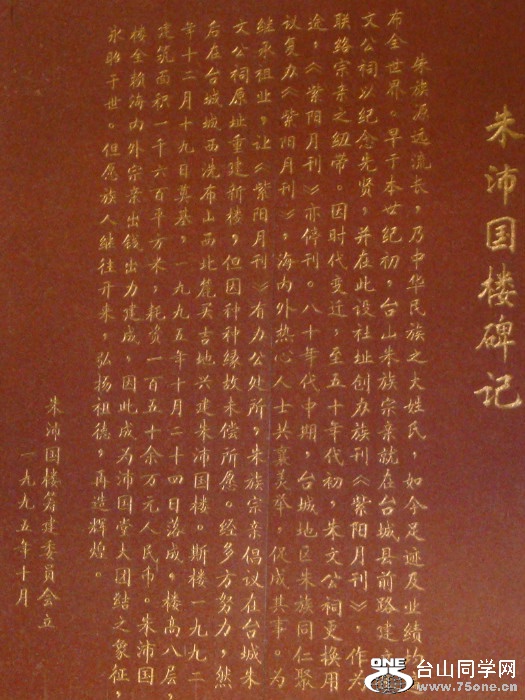 朱沛国楼碑记
朱族源远流长，乃中华民族之大姓氏，如今足迹及业绩均
布全世界。早于本世纪初，台山朱族宗亲就在台城县前路建
文公祠以纪念先贤，并在此设社址创办族刊《紫阳月刊》，作为
联络宗亲之紐带。因时代变迁，至五十年代初，朱文公祠更换用
途，《紫阳月刊》亦停刊。八十年代中期，台城地区朱族同仁聚
议复办《紫阳月刊》，海内外热心人士共襄义举，促成其事。为
继承祖业，让《紫阳月刊》有办公处所，朱族宗亲倡议在台城朱
文公祠原址重建新楼，但因种种缘故未偿所愿。经多方努力，然
后在台城城西洗布山西北麓买吉地兴建朱沛国楼。斯楼一九九二
年十二月十九日奠基，一九九五年十月二十四日落成，楼高八层
建筑面积一千六百平方米，耗资一百五十余万元人民币。朱沛国
楼全赖海内外宗亲出钱出力建成，因此成为沛国堂大团结之象征
永昭于世。但愿族人继往开来，弘扬祖德，再造辉煌。
朱沛国楼筹建委員会立
一九九五年十月
ONE
台山同学网
www.75one.cn